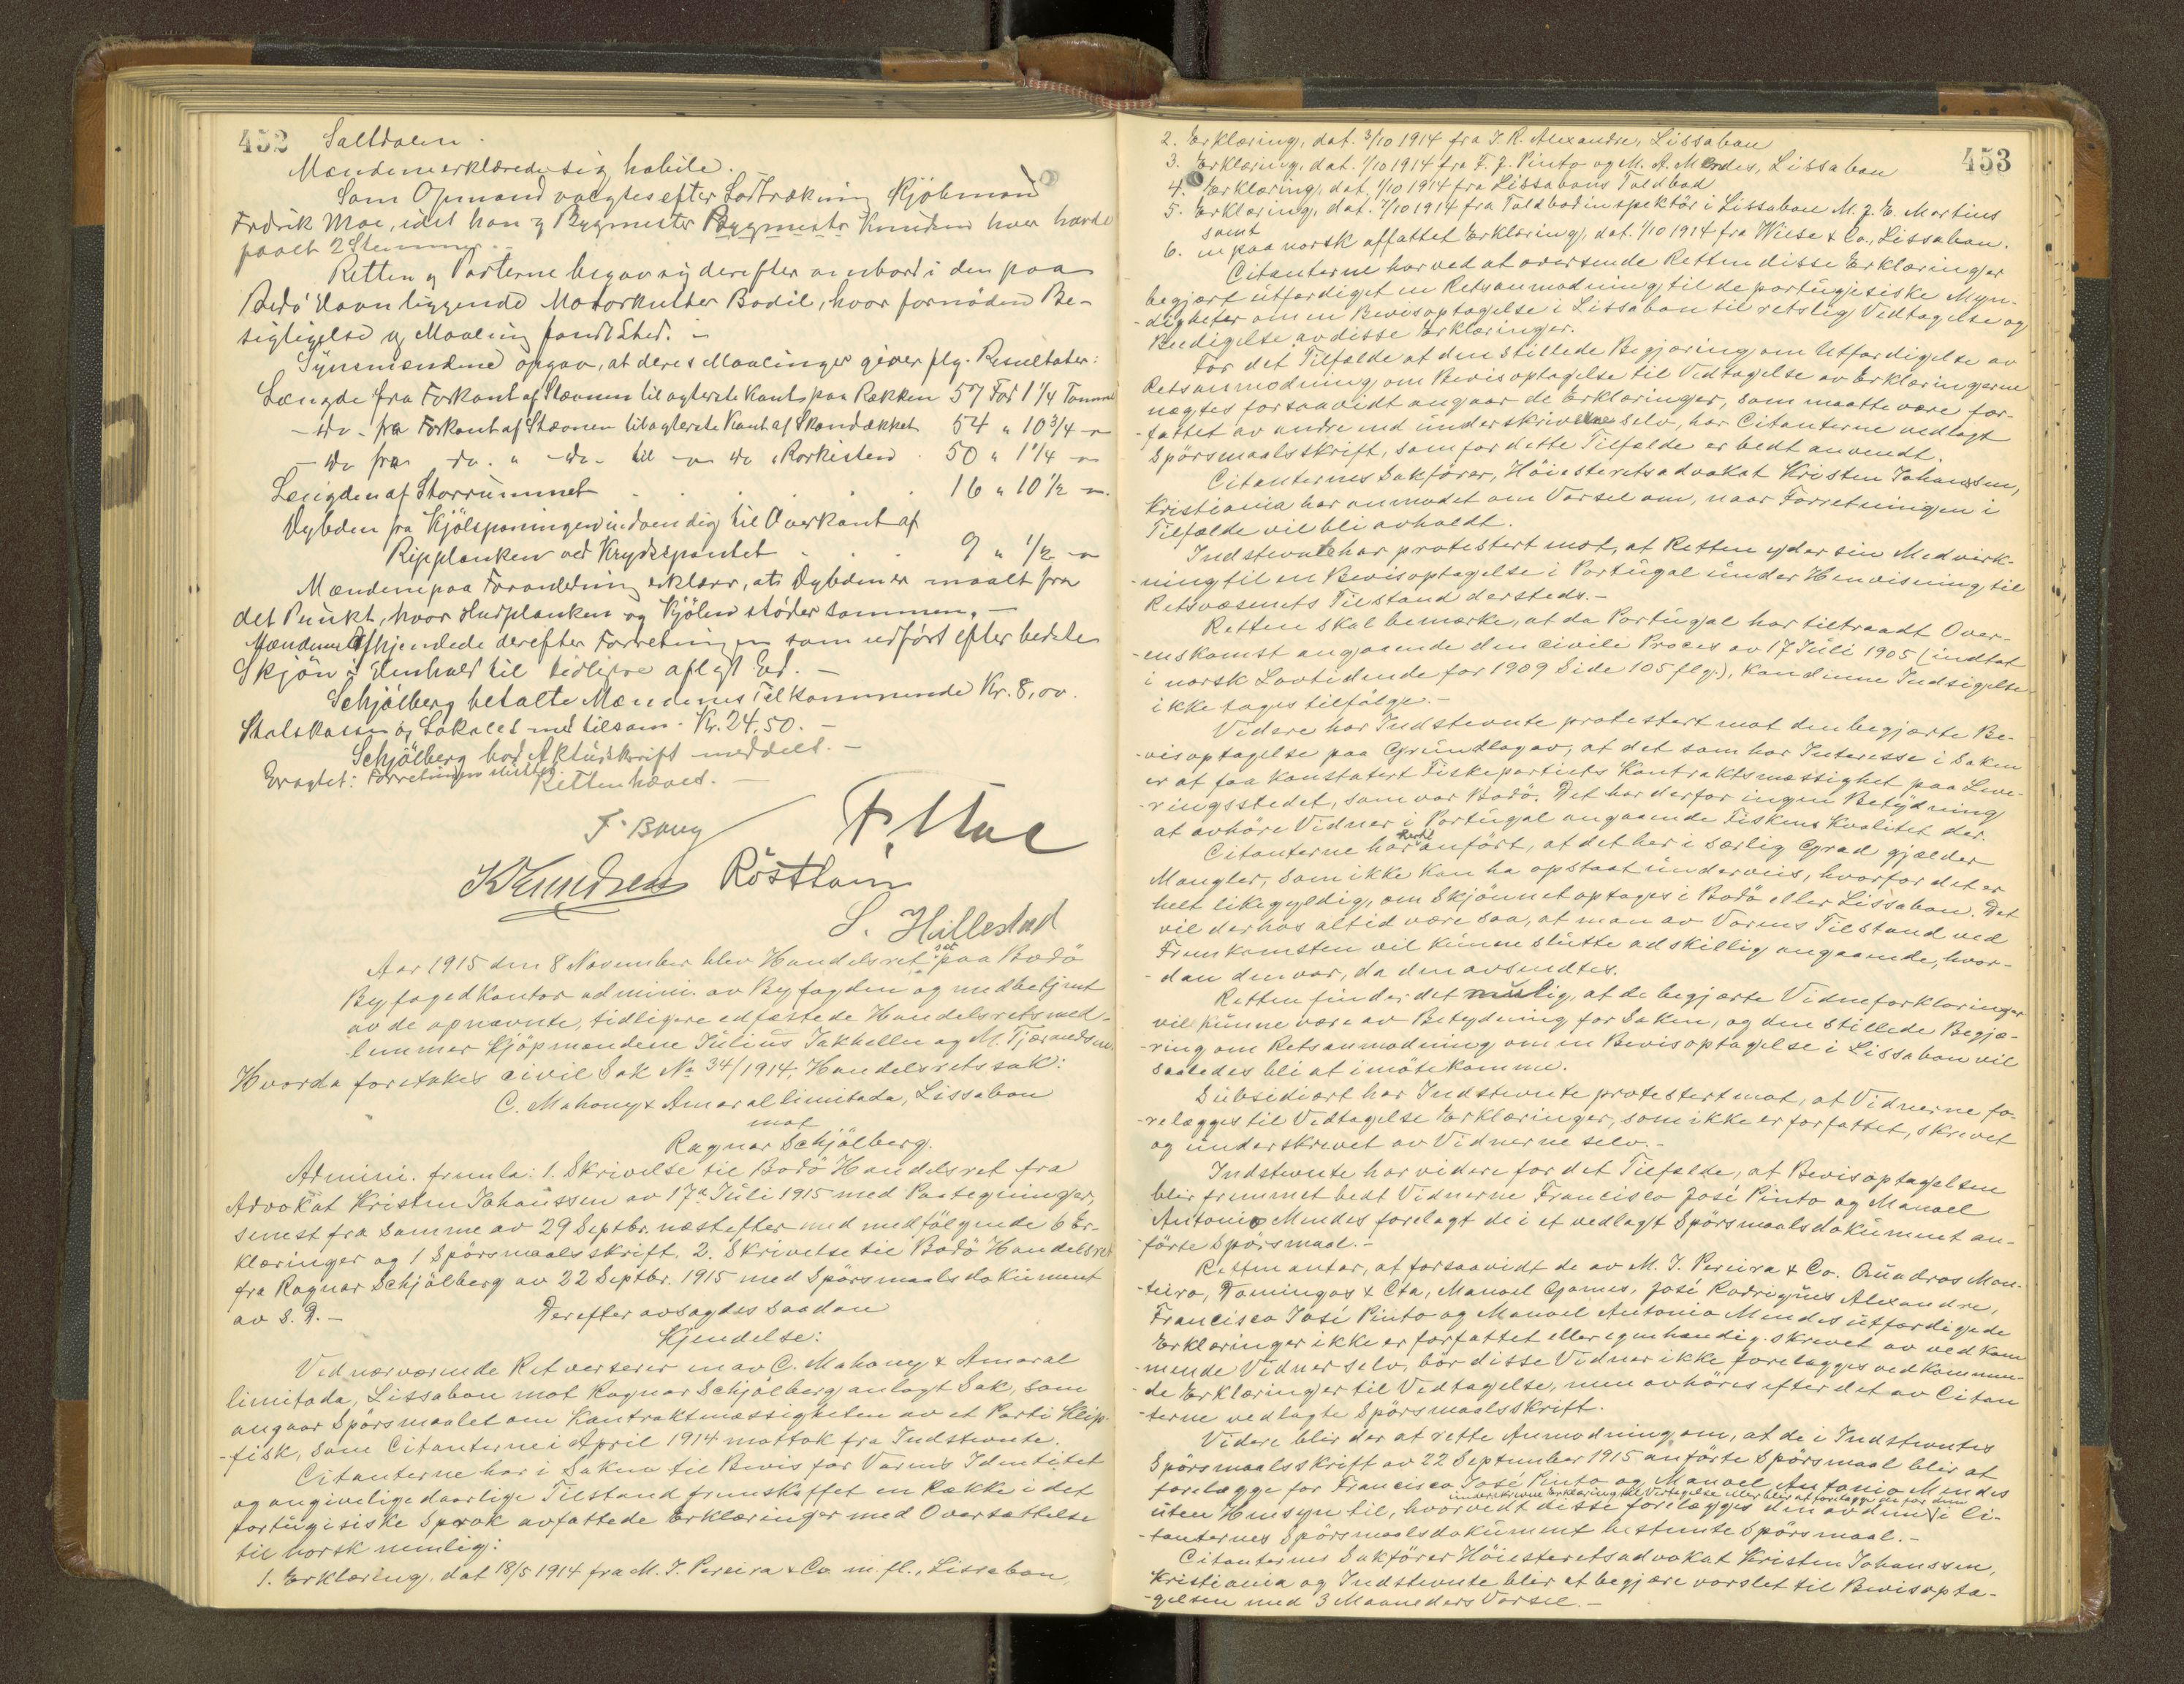 452 Saltdalen.
Mændene erklærede sig habile.
Som Opmand valgtes efter Lodtrækning Kjöbmand
Fredrik Moe, idet han og Bygmester Bygmester Knudsen hver havde
faaet 2 Stemmer. -
Retten og Parterne begav sig derefter ombord i den paa
Bodö Havn liggende Motorkutter Bodil, hvor fornöden Be-
sigtigelse og Maaling fandt Sted. -
Synsmændene opgav, at deres Maalinger giver flg. Resultater:
Længde fra Forkant af Stævnen til agterste Kant paa Rækken 57 Fod 1 1/4 Tomme
- do - fra Forkant af Stævnen til agterste Kant af Skandækket 54 " 10 3/4 -"-
- do fra do. " - do - til -"- do i Rorkisten . 50 " 1 1/4 -"-
Længden af Storrummet . . . . . 16 " 10 1/2 -"-
Dybden fra Kjölspaningen indvendig til Overkant af
Ripplanken ved Krydsspantet . . . 9 " 1/2 -"-
Mændene paa Foranledning erklærer, at Dybden er maalt fra
det Punkt, hvor Hudplanken og Kjölen stöder sammen. -
Mændene afhjemlede derefter Forretningen som udfört efter bedste
Skjön i Henhold til tidligere aflagt Ed. -
Schjölberg betalte Mændenes Tilkommende Kr. 8,00.
Statskassen og Lokalet med tilsam. Kr. 24,50. -
Schjölberg bad Aktudskrift meddelt. -
Eragtet: Forretningen sluttet.
Retten hævet. -
F. Bang F. Moe
K Knudsen Rösttam
S. Hillestad
Aar 1915 den 8 November blev Handelsret sat paa Bodö
Byfogedkontor admini. av Byfogden og medbetjent
av de opnævnte, tidligere edfæstede Handelsretsmed-
lemmer Kjöpmændene Julius Jakhelln og M. Tjærandsen.
Hvorda foretokes civil Sak No 34/1914, Handelsretssak:
C. Mahony & Amaral limitada, Lissabon
mot
Ragnar Schjölberg.
Admini. fremla: 1. Skrivelse til Bodö Handelsret fra
Advokat Kristen Johanssen av 17de Juli 1915 med Paategninger,
senest fra Samme av 29 Septbr. næstefter med medfölgende 6 Er-
klæringer og 1 Spörsmaalsskrift. 2. Skrivelse til Bodö Handelsret
fra Ragnar Schjölberg av 22 Septbr. 1915 med Spörsmaalsdokument
av S. D. - Derefter avsagdes saadan
Kjendelse:
Ved nærværende Ret verserer en av C. Mahony & Amaral
limitada, Lissabon mot Ragnar Schjölberg anlagt Sak, som
angaar Spörsmaalet om Kontraktmæssigheten av et Parti Klip-
-fisk, som Citanterne i April 1914 mottok fra Indstevnte.
Citanterne har i Saken til Bevis for Varens Identitet
og angivelige daarlige Tilstand fremskaffet en Række i det
portugisiske Sprok avfattede Erklæringer med Oversættelse
til norsk nemlig:
1. Erklæring, dat 18/5 1914 fra M. J. Pereira & Co m. fl., Lissabon,
453
2. Erklæring, dat. 3/10 1914 fra J. R. Alexandre, Lissabon
3. Erklæring, dat. 1/10 1914 fra F. J. Pinto og M. A. Mendes, Lissabon
4. Erklæring, dat. 1/10 1914 fra Lissabons Toldbod
5. Erklæring, dat. 7/10 1914 fra Toldbodinspektör i Lissabon M. J. E. Martins
samt
6. en paa norsk affattet Erklæring, dat. 1/10 1914 fra Wiese & Co., Lissabon.
Citanterne har ved at oversende Retten disse Erklæringer
begjært utfærdiget en Retsanmodning til de portugisiske Myn-
-digheter om en Bevisoptagelse i Lissabon til retslig Vedtagelse og
Beedigelse av disse Erklæringer.
For det Tilfælde at den stillede Begjæring om Utfærdigelse av
Retsanmodning om Bevisoptagelse til Vedtagelse av Erklæringerne
nægtes forsaavidt angaar de Erklæringer, som maatte være for-
fattet av andre end underskriverne selv, har Citanterne vedlagt
Spörsmaalsskrift, som for dette Tilfælde er bedt anvendt.
Citanternes Sakförer, Höiesteretsadvokat Kristen Johanssen,
Kristiania har anmodet om Varsel om, naar Forretningen i
Tilfælde vil bli avholdt.
Indstevnte har protestert mot, at Retten yder sin Medvirk-
-ning til en Bevisoptagelse i Portugal under Henvisning til
Retsvæsenets Tilstand dersteds. -
Retten skal bemærke, at da Portugal har tiltraadt Over-
-enskomst angaaende den civile Proces av 17 Juli 1905 (indtat
i norsk Lovtidende for 1909 Side 105 flg.), kan denne Indsigelse
ikke tages tilfölge. -
Videre har Indstevnte protestert mot den begjærte Be-
visoptagelse paa Grundlag av, at det som har Interesse i Saken
er at faa konstatert Fiskepartiets Kontraktsmæssighet paa Leve-
-ringsstedet, som var Bodö. Det har derfor ingen Betydning
at avhöre Vidner i Portugal angaaende Fiskens Kvalitet der.
Citanterne har hertil anfört, at det her i særlig Grad gjælder
Mangler, som ikke kan ha opstaat underveis, hvorfor det er
helt likegyldig, om Skjönnet optages i Bodö eller Lissabon. Det
vil derhos altid være saa, at man av Varens Tilstand ved
Fremkomsten vil kunne slutte adskillig angaaende, hvor-
-dan den var, da den avsendtes.
Retten finder det mulig, at de begjærte Vidneforklaringer
vil kunne være av Betydning for Saken, og den stillede Begjæ-
-ring om Retsanmodning om en Bevisoptagelse i Lissabon vil
saaledes bli at imötekomme.
Subsidiært har Indstevnte protestert mot, at Vidnerne fo-
-relægges til Vedtagelse Erklæringer, som ikke er forfattet, skrevet
og underskrevet av Vidnerne selv. -
Indstevnte har videre for det Tilfælde, at Bevisoptagelsen
blir fremmet bedt Vidnerne Francisco José Pinto og Manoel
Antonio Mendes forelagt de i et vedlagt Spörsmaalsdokument an-
förte Spörsmaal. -
Retten antar, at forsaavidt de av M. J. Pereira & Co. Quadros Mon-
-teiro, Domingos & Cta, Manoel Gomes, José Rodrigues Alexandre,
Francisco José Pinto og Manoel Antonio Mendes utfærdigede
Erklæringer ikke er forfattet eller egenhændig skrevet av vedkom
mende Vidner selv, bör disse Vidner ikke forelægges vedkommen-
-de Erklæringer til Vedtagelse, men avhöres efter det av Citan
-terne vedlagte Spörsmaalsskrift.
Videre blir der at rette Anmodning om, at de i Indstevntes
Spörsmaalsskrift av 22 September 1915 anförte Spörsmaal blir at
forelægge for Francisco José Pinto og Manoel Antonio Mendes
underskrevne Erklæring til Vedtagelse eller blir at forelægge de for dem
uten Hensyn til, hvorvidt disse forelægges den av dem i Ci-
-tanternes Spörsmaalsdokument bestemte Spörsmaal. -
Citanternes Sakförer Höiesteretsadvokat Kristen Johanssen,
Kristiania og Indstevnte blir at begjære varslet til Bevisopta-
-gelsen med 3 Maaneders Varsel. -